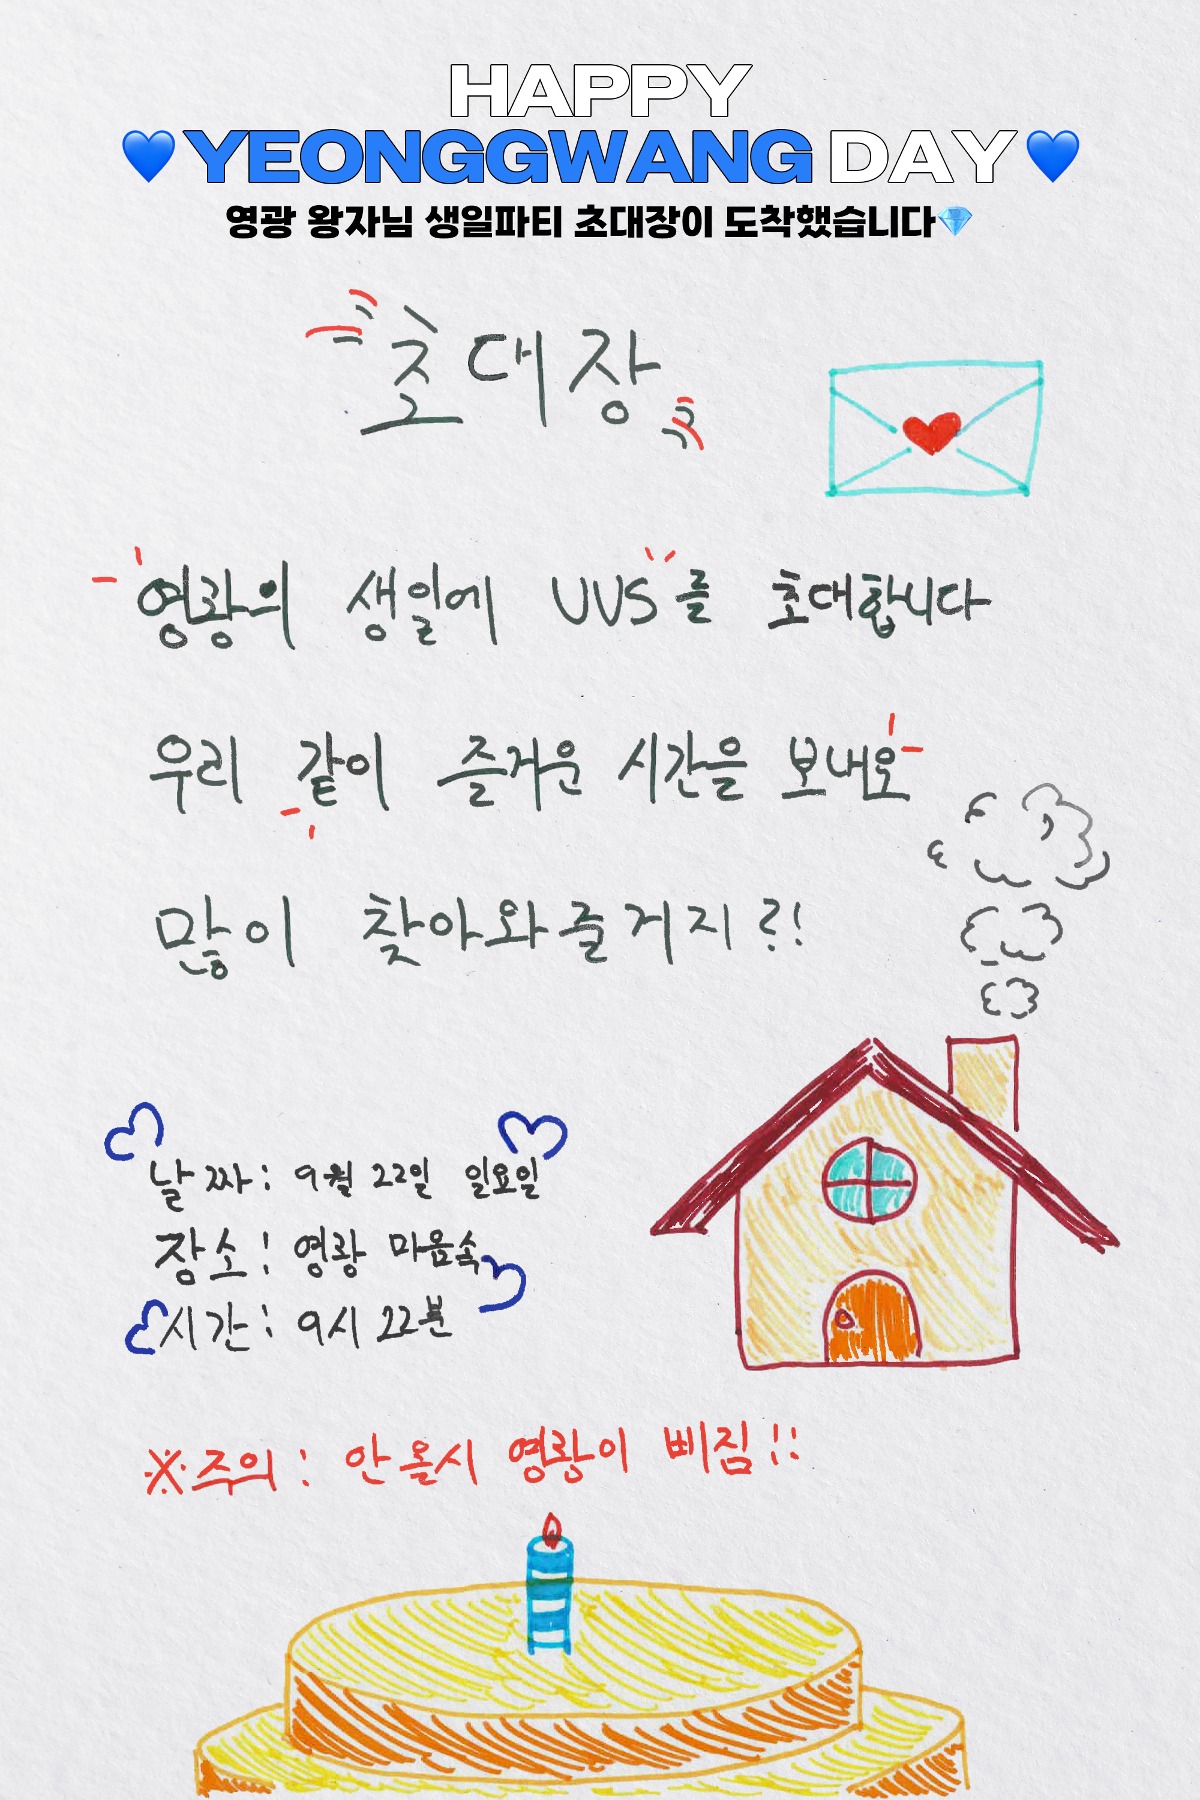 HAPPY
💙YEONGGWANG DAY💙
영광 왕자님 생일파티 초대장이 도착했습니다💎
초대장
영광의 생일에 UVS를 초대합니다
우리 같이 즐거운 시간을 보내요
많이 찾아와줄거지?!
날짜: 9월 22일 일요일
장소: 영광 마음속
시간: 9시 22분
※주의: 안올시 영광이 삐짐!!